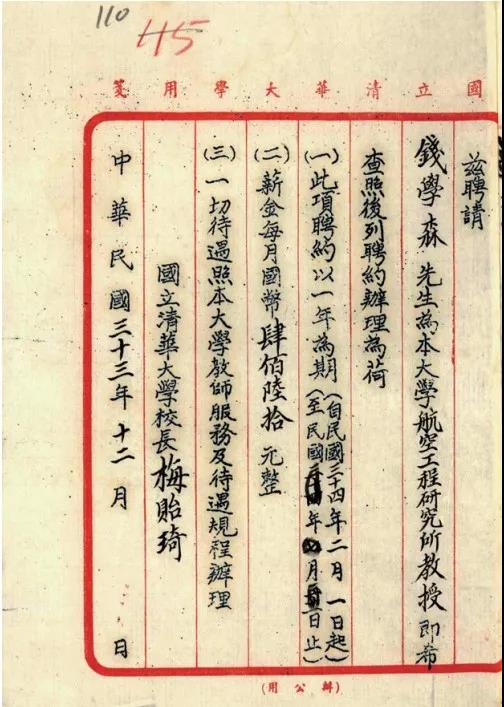 110
45
國立清華大學用箋
茲聘請
錢學森 先生為本大學航空工程研究所教授 即希
查照後列聘約辦理為荷
(一)此項聘約以一年為期(自民國三十四年二月一日起)
(至民國 年 月 日止)
(二)薪金每月國幣肆佰陸拾元整
(三)一切待遇照本大學教師服務及待遇規程辦理
國立清華大學校長 梅貽琦
中華民國三十三年十二月 日
(用公辦)